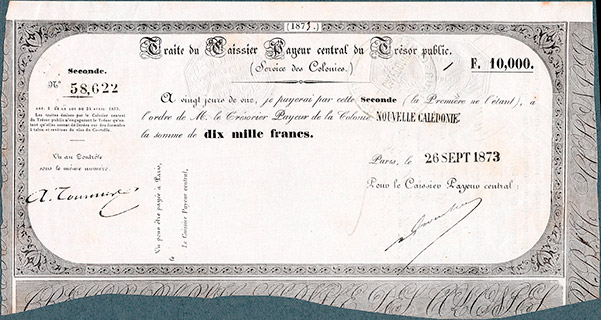 (1873.)
Traite du Caissier Payeur central du Trésor public.
(Service des Colonies.)
F. 10,000.
Seconde.
N.° 58,622
ART. 2 DE LA LOI DU 24 AVRIL 1833.
Les traites émises par le Caissier central
du Trésor public n'engagent le Trésor qu'au-
tant qu'elles sont délivrées sur des formules
à talon et revêtues du visa du Contrôle.
Vu au Contrôle
sous le même numéro.
A vingt jours de vue, je payerai par cette Seconde (la Première ne l'étant), à
l'ordre de M. le Trésorier Payeur de la Colonie NOUVELLE CALÉDONIE
la somme de dix mille francs.
Paris, le 26 SEPT 1873
Pour le Caissier Payeur central:
Vu pour être payée à Paris,
Le Caissier Payeur central,